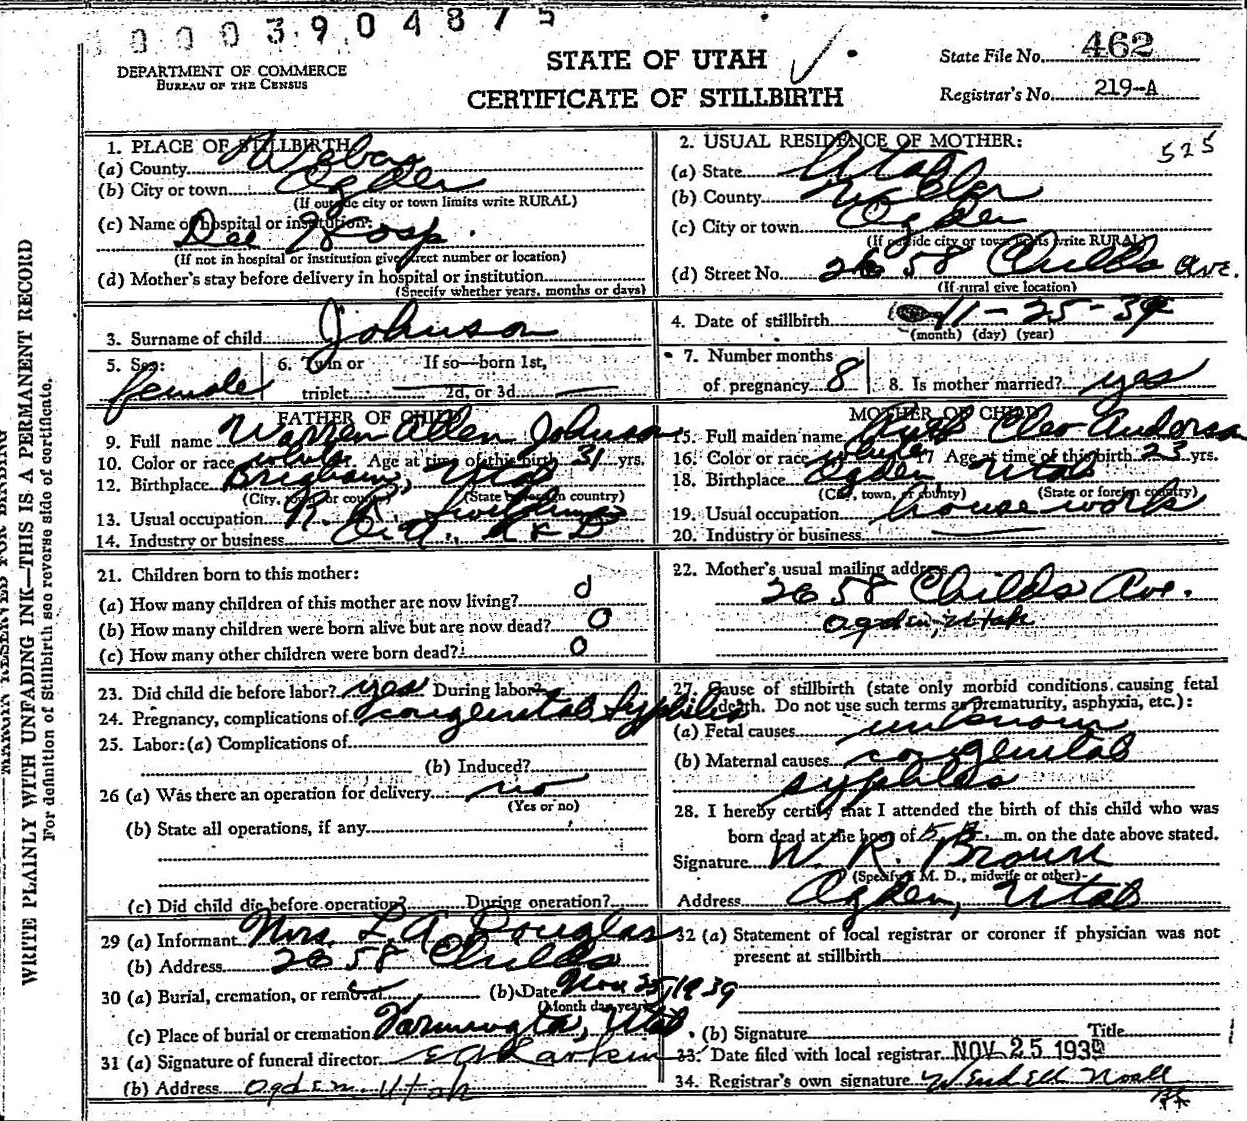 0003904875
STATE OF UTAH
CERTIFICATE OF STILLBIRTH
DEPARTMENT OF COMMERCE
BUREAU OF THE CENSUS
State File No. 462
Registrar's No. 219-A
525
WRITE PLAINLY WITH UNFADING INK—THIS IS A PERMANENT RECORD
For definition of Stillbirth see reverse side of certificate.
1. PLACE OF STILLBIRTH
(a) County Weber
(b) City or town Ogden
(If outside city or town limits write RURAL)
(c) Name of hospital or institution:
Dee Hosp.
(If not in hospital or institution give street number or location)
(d) Mother's stay before delivery in hospital or institution
(Specify whether years, months or days)
2. USUAL RESIDENCE OF MOTHER:
(a) State Utah
(b) County Weber
(c) City or town Ogden
(If outside city or town limits write RURAL)
(d) Street No. 2658 Childs Ave.
(If rural give location)
3. Surname of child Johnson
4. Date of stillbirth 11-25-39
(month) (day) (year)
5. Sex: female
6. Twin or triplet If so—born 1st, 2d, or 3d
7. Number months of pregnancy 8
8. Is mother married? yes
FATHER OF CHILD
9. Full name Warren Allen Johnson
10. Color or race white 11. Age at time of this birth 31 yrs.
12. Birthplace Brigham, Utah
(City, town, or county) (State or foreign country)
13. Usual occupation R. R.
14. Industry or business
MOTHER OF CHILD
15. Full maiden name Ruth Cleo Anderson
16. Color or race white 17 Age at time of this birth 23 yrs.
18. Birthplace Ogden Utah
(City, town, or county) (State or foreign country)
19. Usual occupation housework
20. Industry or business
21. Children born to this mother:
(a) How many children of this mother are now living? 0
(b) How many children were born alive but are now dead? 0
(c) How many other children were born dead? 0
22. Mother's usual mailing address
2658 Childs Ave.
Ogden, Utah
23. Did child die before labor? yes During labor?
24. Pregnancy, complications of congenital Syphilis
25. Labor: (a) Complications of
(b) Induced?
26 (a) Was there an operation for delivery no
(Yes or no)
(b) State all operations, if any
(c) Did child die before operation? During operation?
27. Cause of stillbirth (state only morbid conditions causing fetal
death. Do not use such terms as prematurity, asphyxia, etc.):
(a) Fetal causes unknown
(b) Maternal causes congenital
syphilis
28. I hereby certify that I attended the birth of this child who was
born dead at the hour of 5 m. on the date above stated.
Signature W. R. Brown
(Specify if M. D., midwife or other)
Address Ogden, Utah
29 (a) Informant Mrs. L A Douglas
(b) Address 2658 Childs
30 (a) Burial, cremation, or removal (b) Date Nov 25, 1939
(Month day year)
(c) Place of burial or cremation Farmington, Utah
31 (a) Signature of funeral director E A Larkin
(b) Address Ogden Utah
32 (a) Statement of local registrar or coroner if physician was not
present at stillbirth
(b) Signature Title
33. Date filed with local registrar NOV 25 1939
34. Registrar's own signature Wendell Noall